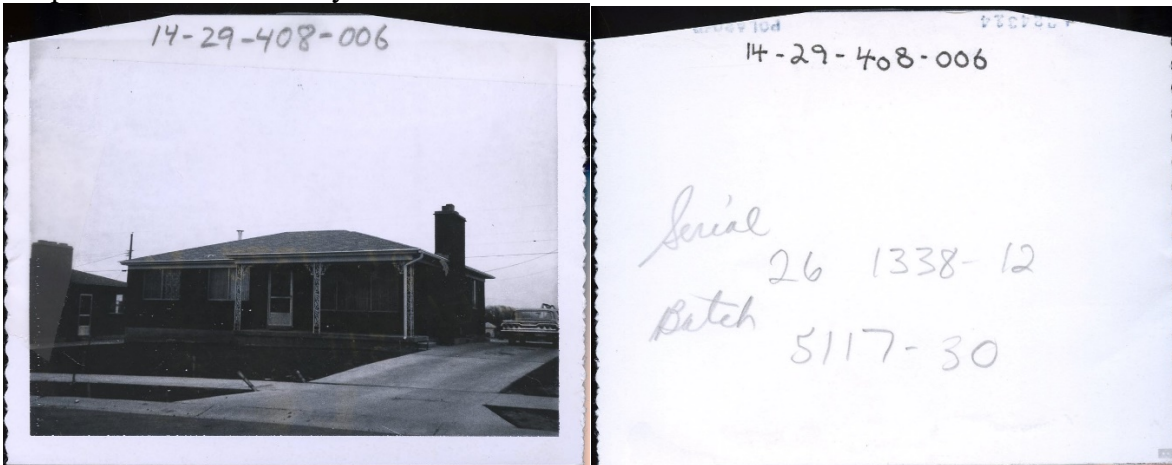 14-29-408-006
14-29-408-006
Serial
26 1338-12
Batch
5117-30